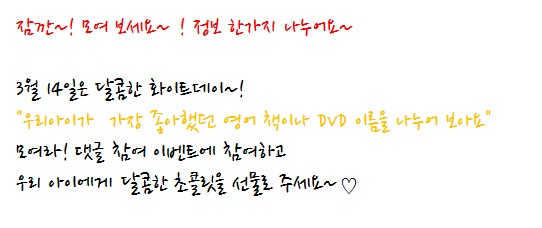 잠깐~! 모여 보세요~ ! 정보 한가지 나누어요~
3월 14일은 달콤한 화이트데이~!
"우리아이가 가장 좋아했던 영어 책이나 DVD 이름을 나누어 보아요"
모여라! 댓글 참여 이벤트에 참여하고
우리 아이에게 달콤한 초콜릿을 선물로 주세요~♡